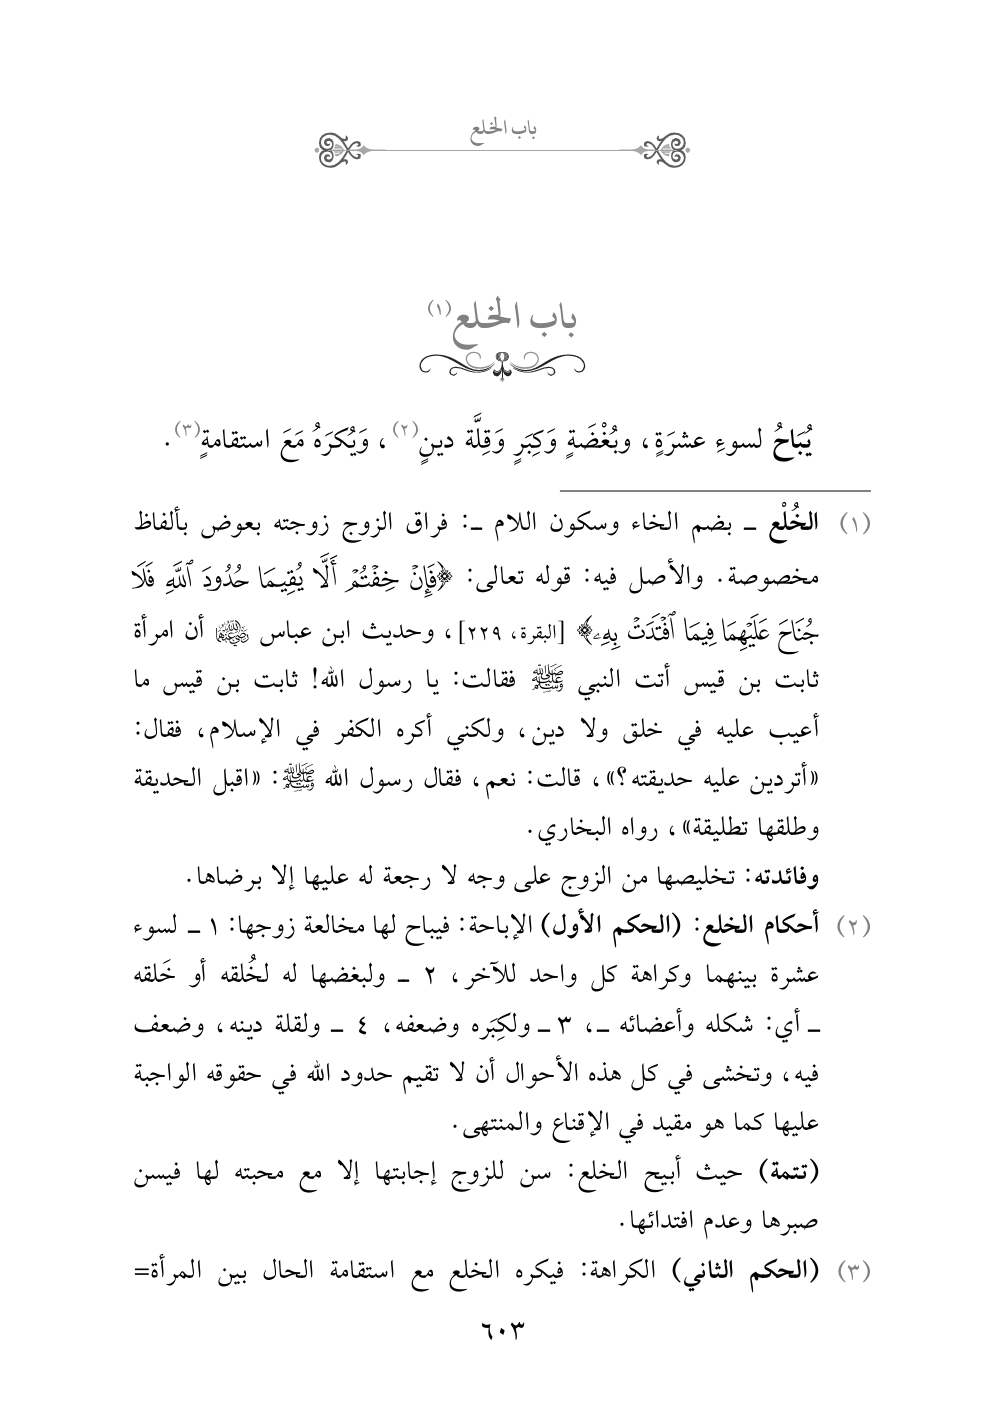 باب الخلع
باب الخلع(١)
يُبَاحُ لسوءِ عشرَةٍ، وبُغْضَةٍ وَكِبَرٍ وَقِلَّة دينٍ(٢)، وَيُكرَهُ مَعَ استقامةٍ(٣).
(١) الخُلْع ـ بضم الخاء وسكون اللام ـ: فراق الزوج زوجته بعوض بألفاظ
مخصوصة. والأصل فيه: قوله تعالى: ﴿فَإِنْ خِفْتُمْ أَلَّا يُقِيمَا حُدُودَ ٱللَّهِ فَلَا
جُنَاحَ عَلَيْهِمَا فِيمَا ٱفْتَدَتْ بِهِۦ﴾ [البقرة، ٢٢٩]، وحديث ابن عباس ﵄ أن امرأة
ثابت بن قيس أتت النبي ﷺ فقالت: يا رسول الله! ثابت بن قيس ما
أعيب عليه في خلق ولا دين، ولكني أكره الكفر في الإسلام، فقال:
«أتردين عليه حديقته؟»، قالت: نعم، فقال رسول الله ﷺ: «اقبل الحديقة
وطلقها تطليقة»، رواه البخاري.
وفائدته: تخليصها من الزوج على وجه لا رجعة له عليها إلا برضاها.
(٢) أحكام الخلع: (الحكم الأول) الإباحة: فيباح لها مخالعة زوجها: ١ ـ لسوء
عشرة بينهما وكراهة كل واحد للآخر، ٢ ـ ولبغضها له لخُلقه أو خَلقه
ـ أي: شكله وأعضائه ـ، ٣ ـ ولكِبَره وضعفه، ٤ ـ ولقلة دينه، وضعف
فيه، وتخشى في كل هذه الأحوال أن لا تقيم حدود الله في حقوقه الواجبة
عليها كما هو مقيد في الإقناع والمنتهى.
(تتمة) حيث أبيح الخلع: سن للزوج إجابتها إلا مع محبته لها فيسن
صبرها وعدم افتدائها.
(٣) (الحكم الثاني) الكراهة: فيكره الخلع مع استقامة الحال بين المرأة=
٦٠٣